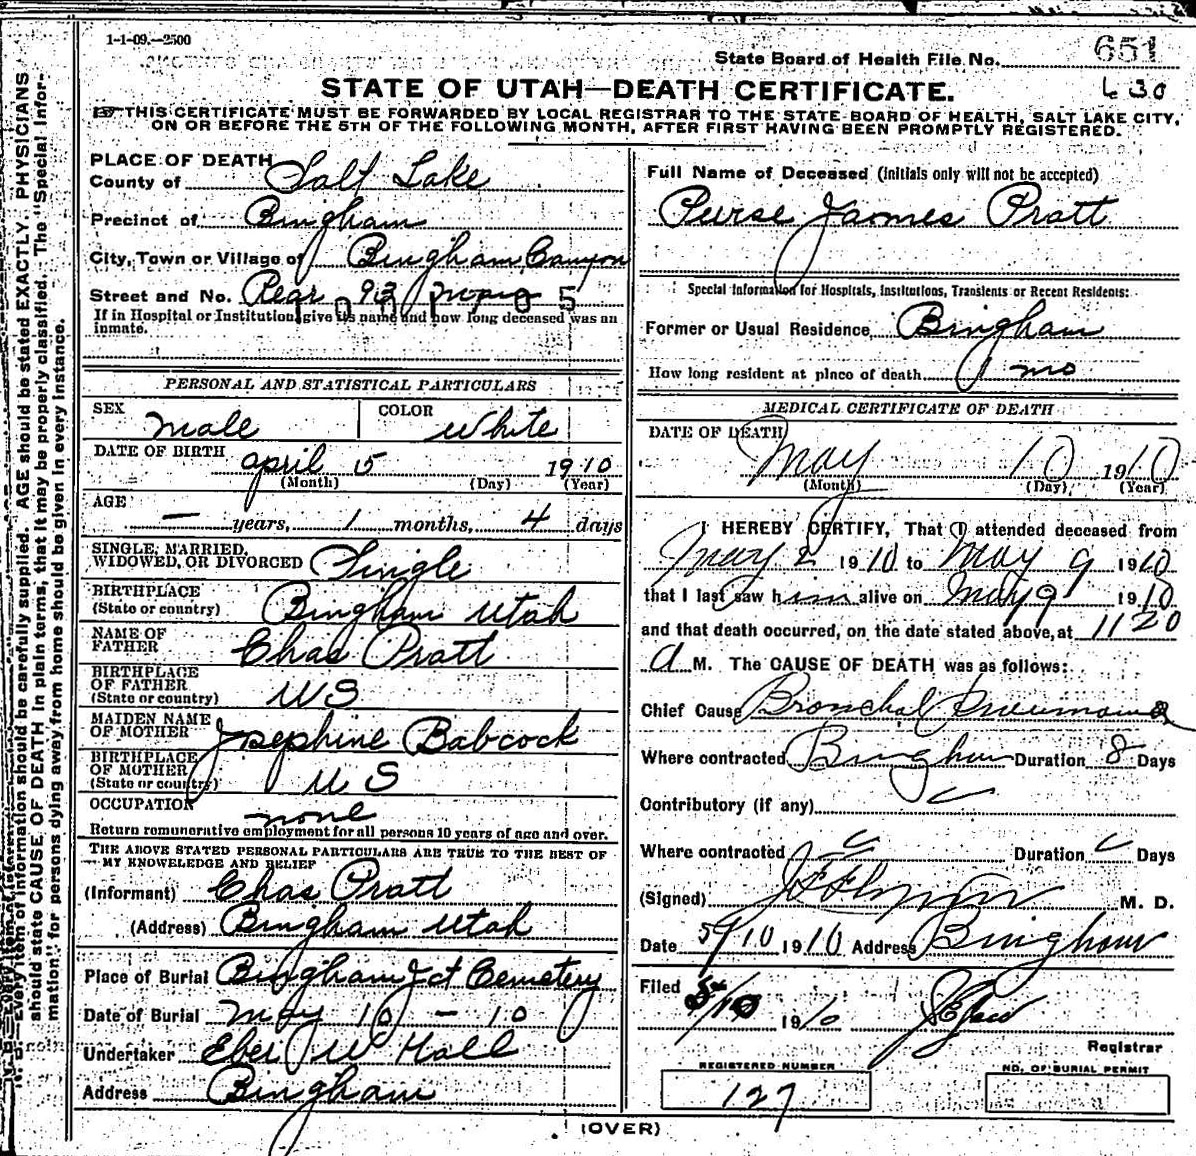 1-1-09.—2500
State Board of Health File No. 651
630
STATE OF UTAH—DEATH CERTIFICATE.
THIS CERTIFICATE MUST BE FORWARDED BY LOCAL REGISTRAR TO THE STATE BOARD OF HEALTH, SALT LAKE CITY,
ON OR BEFORE THE 5TH OF THE FOLLOWING MONTH, AFTER FIRST HAVING BEEN PROMPTLY REGISTERED.
PLACE OF DEATH
County of Salt Lake
Precinct of Bingham
City, Town or Village of Bingham Canyon
Street and No. Rear 93
If in Hospital or Institution, give its name and how long deceased was an
inmate.
PERSONAL AND STATISTICAL PARTICULARS
SEX Male COLOR White
DATE OF BIRTH April 5 1910
(Month) (Day) (Year)
AGE — years, 1 months, 4 days
SINGLE, MARRIED,
WIDOWED, OR DIVORCED Single
BIRTHPLACE
(State or country) Bingham Utah
NAME OF
FATHER Chas Pratt
BIRTHPLACE
OF FATHER
(State or country) US
MAIDEN NAME
OF MOTHER Josephine Babcock
BIRTHPLACE
OF MOTHER
(State or country) US
OCCUPATION none
Return remunerative employment for all persons 10 years of age and over.
THE ABOVE STATED PERSONAL PARTICULARS ARE TRUE TO THE BEST OF
MY KNOWELEDGE AND BELIEF
(Informant) Chas Pratt
(Address) Bingham Utah
Place of Burial Bingham Jct Cemetery
Date of Burial May 10 - 10
Undertaker Eber W Hall
Address Bingham
Full Name of Deceased (initials only will not be accepted)
Purse James Pratt
Special Information for Hospitals, Institutions, Transients or Recent Residents:
Former or Usual Residence Bingham
How long resident at place of death 1 mo
MEDICAL CERTIFICATE OF DEATH
DATE OF DEATH
May 10 1910
(Month) (Day) (Year)
I HEREBY CERTIFY, That I attended deceased from
May 2 1910 to May 9 1910
that I last saw him alive on May 9 1910
and that death occurred, on the date stated above, at 11 20
A M. The CAUSE OF DEATH was as follows:
Chief Cause Bronchal Pneumonia
Where contracted Bingham Duration 8 Days
Contributory (if any)
Where contracted Duration Days
(Signed) M. D.
Date 5/10 1910 Address Bingham
Filed 5/10 1910
Registrar
REGISTERED NUMBER
127
NO. OF BURIAL PERMIT
(OVER)
Every item of information should be carefully supplied. AGE should be stated EXACTLY. PHYSICIANS
should state CAUSE OF DEATH in plain terms, that it may be properly classified. The "Special Infor-
mation" for persons dying away from home should be given in every instance.